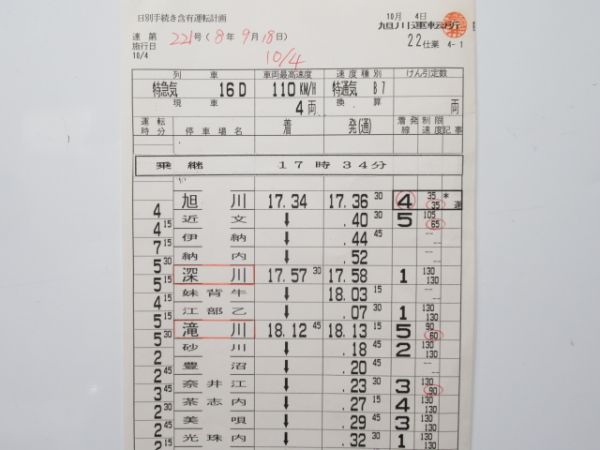 日別手続き含有運転計画
達 第 221号(8年9月18日)
施行日
10/4
10/4
10月 4日
旭川運転所
22仕業 4-1
列 車 車両最高速度 速度種別 けん引定数
特急気 16D 110KM/H 特通気 B7
現 車 4両 換 算 両
運転時分 停車場名 着 発(通) 着発線 制限速度 記事
乗 継 17時34分
旭 川 17.34 17.36 30 4 35 35 *
4
近 文 ↓ .40 30 5 105 65
4 15
伊 納 ↓ .44 45 --
7 15
納 内 ↓ .52 --
5 30
深 川 17.57 30 17.58 1 130 130
5 15
妹背牛 ↓ 18.03 15 --
4 15
江部乙 ↓ .07 30 1 130 130
5 15
滝 川 18.12 45 18.13 15 5 90 60
5 30
砂 川 ↓ .18 45 2 130 130
2
豊 沼 ↓ .20 45 --
2 45
奈井江 ↓ .23 30 3 130 90
3 45
茶志内 ↓ .27 15 4 130 130
2 30
美 唄 ↓ .29 45 3 130 130
2 45
光珠内 ↓ .32 30 1 130 130